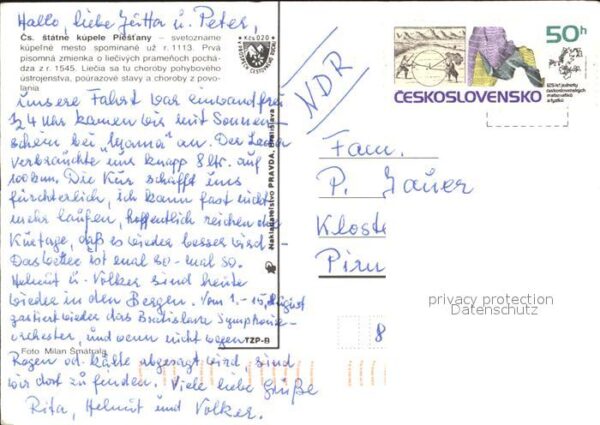 Hallo, liebe Jutta u. Peter,
Čs. štátne kúpele Piešťany – svetoznáme
kúpeľné mesto spomínané už r. 1113. Prvá
písomná zmienka o liečivých prameňoch pochá-
dza z r. 1545. Liečia sa tu choroby pohybového
ústrojenstva, poúrazové stavy a choroby z povo-
lania
unsere Fahrt war einwandfrei
1/2 4 Uhr kamen wir mit Sonnen-
schein bei an. Der Lada
verbrauchte nur knapp 8 ltr. auf
100 km. Die Kur schafft uns
fürchterlich, ich kann fast nicht
mehr laufen, hoffentlich reichen die
Kurtage, daß es wieder besser wird –
Das Wetter ist mal so - mal so.
Helmut u. Volker sind heute
wieder in den Bergen. Vom 1. – 15. August
gastiert wieder das Bratislava Symphonie-
orchester, und wenn nicht wegen
Regen od. Kälte abgesagt wird, sind
wir dort zu finden. Viele liebe Grüße
Rita, Helmut und Volker.
Foto: Milan Šmátrala
Kčs 0,20
Nakladateľstvo PRAVDA, Bratislava
TZP-B
NDR
50h
ČESKOSLOVENSKO
125 let jednoty
československých
matematiků
a fyziků
Fam.
P. Jauer
Kloste
Pirn
8
privacy protection
Datenschutz